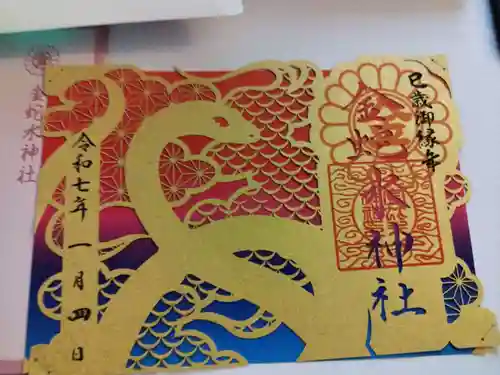 巳歳御縁舎
金蛇水神社
令和七年一月四日
金蛇水神社